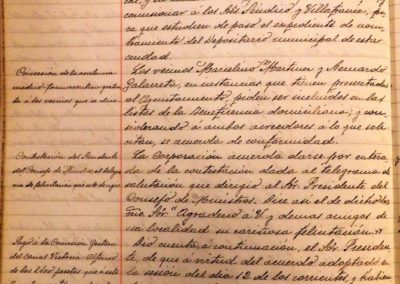 comisionar á los Sres. Síndico y Villafranca, pa
ra que estudien de paso el expediente de nom-
bramiento del Depositario municipal de esta
ciudad.
Los vecinos Marcelino Martinez y Bernardo
Galarreta, en instancias que tienen presentadas
al Ayuntamiento, piden ser incluidos en las
listas de la Beneficencia domiciliaria; y con-
siderando á ambos acreedores á lo que soli-
citan, se acuerda de conformidad.
La Corporación acuerda darse por entera
da de la contestación dada al telegrama de
salutación que dirigió al Sr. Presidente del
Consejo de Ministros. Dice así el de dicho
Sor. "Agradezco á V. y demas amigos de
esa localidad su cariñosa felicitación."
Dió cuenta, á continuación, el Sr. Presiden
te, de que á virtud del acuerdo adoptado en
la sesión del dia 12 de los corrientes,
Concesión de la asistencia
á los vecinos que se dice.
Contestación del Presidente
del Consejo de Ministros al telegra
ma de felicitación que se le dirigió
Pago á la Comisión gestora
del canal Victoria-Alfonso
de las pesetas que á este